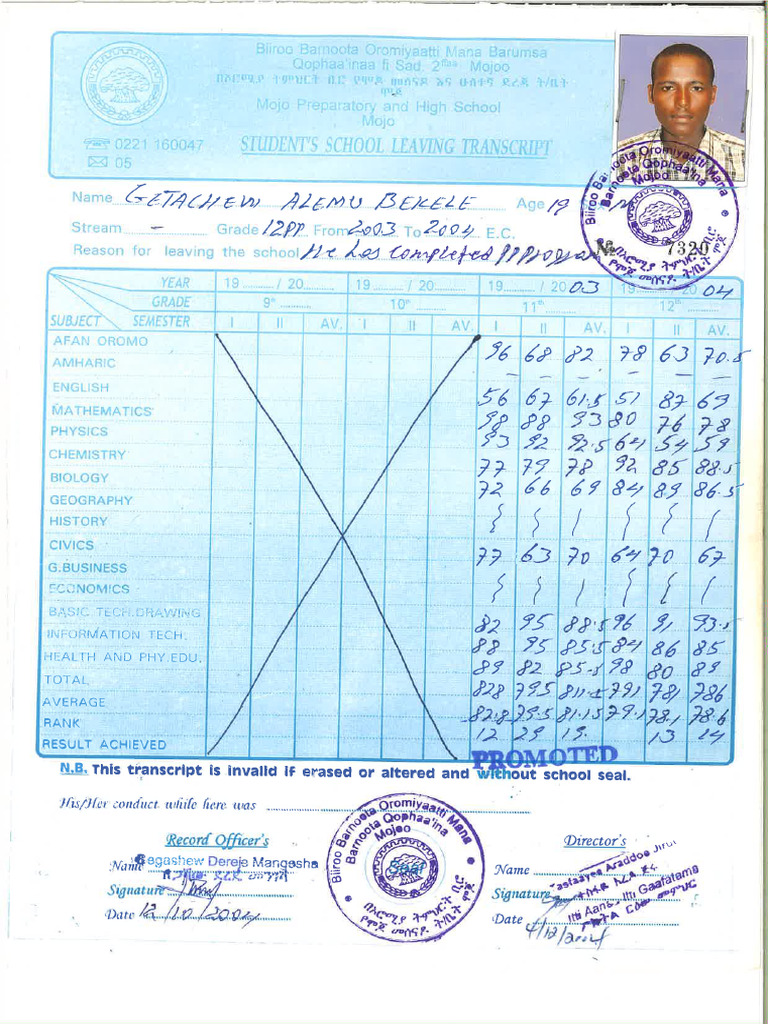 Biiroo Barnoota Oromiyaatti Mana Barumsa
Qophaa'inaa fi Sad. 2ffaa Mojoo
በኦሮሚያ ትምህርት ቢሮ የሞጆ መሰናዶ እና ሁለተኛ ደረጃ ት/ቤት
ሞጆ
Mojo Preparatory and High School
Mojo
0221 160047
05
STUDENT'S SCHOOL LEAVING TRANSCRIPT
Name GETACHEW ALEMU BEKELE Age 19
Stream - Grade 12PP From 2003 To 2004 E.C.
Reason for leaving the school He has completed PP Program
Biiroo Barnoota Oromiyaatti Mana
Barnoota Qophaa'ina
Mojoo
በኦሮሚያ ትምህርት ቢሮ
የሞጆ መሰናዶ ት/ቤት ሞጆ
No 7320
YEAR 19 / 20 19 / 20 19 / 2003 19 / 2004
GRADE 9th 10th 11th 12th
SUBJECT SEMESTER I II AV. I II AV. I II AV. I II AV.
AFAN OROMO 96 68 82 78 63 70.5
AMHARIC – – – – – –
ENGLISH 56 67 61.5 51 87 69
MATHEMATICS 98 88 93 80 76 78
PHYSICS 93 92 92.5 64 54 59
CHEMISTRY 77 79 78 92 85 88.5
BIOLOGY 72 66 69 84 89 86.5
GEOGRAPHY
HISTORY
CIVICS 77 63 70 64 70 67
G.BUSINESS
ECONOMICS
BASIC TECH.DRAWING 82 95 88.5 96 91 93.5
INFORMATION TECH. 88 95 85.5 84 86 85
HEALTH AND PHY.EDU. 89 82 85.5 98 80 89
TOTAL 828 795 811.5 791 781 786
AVERAGE 82.8 79.5 81.15 79.1 78.1 78.6
RANK 12 29 19 13 14
RESULT ACHIEVED PROMOTED
N.B. This transcript is invalid if erased or altered and without school seal.
His/Her conduct while here was
Record Officer's
Name Segashew Dereje Mangesha
Signature
Date 12/10/2004
Biiroo Barnoota Oromiyaatti Mana
Barnoota Qophaa'ina
Mojoo
Seal
በኦሮሚያ ትምህርት ቢሮ
የሞጆ መሰናዶ ት/ቤት ሞጆ
Director's
Name Tasfaayee Araddoo
Signature Itti Aanaa Itti Gaafatama
Date 4/12/2004